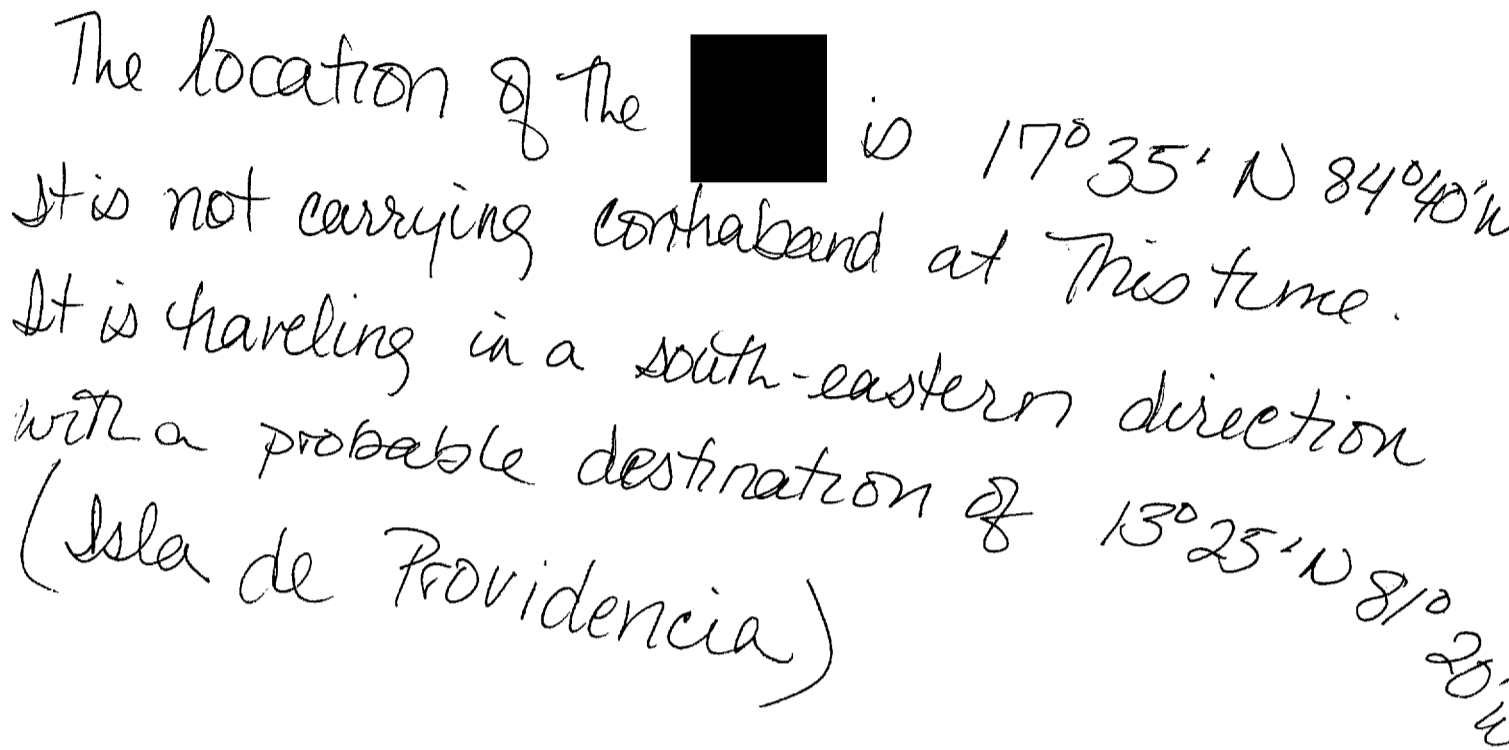 The location of the is 17° 35' N 84° 40' W
It is not carrying contraband at This time.
It is traveling in a south-eastern direction
with a probable destination of 13° 25' N 81° 20' W
(Isla de Providencia)